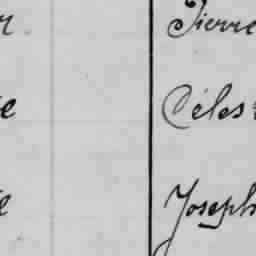 r Pierre
e Céles
e Joseph